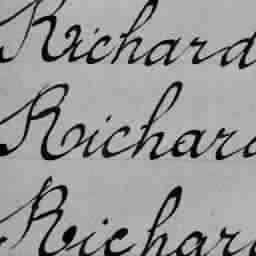 Richard
Richard
Richar